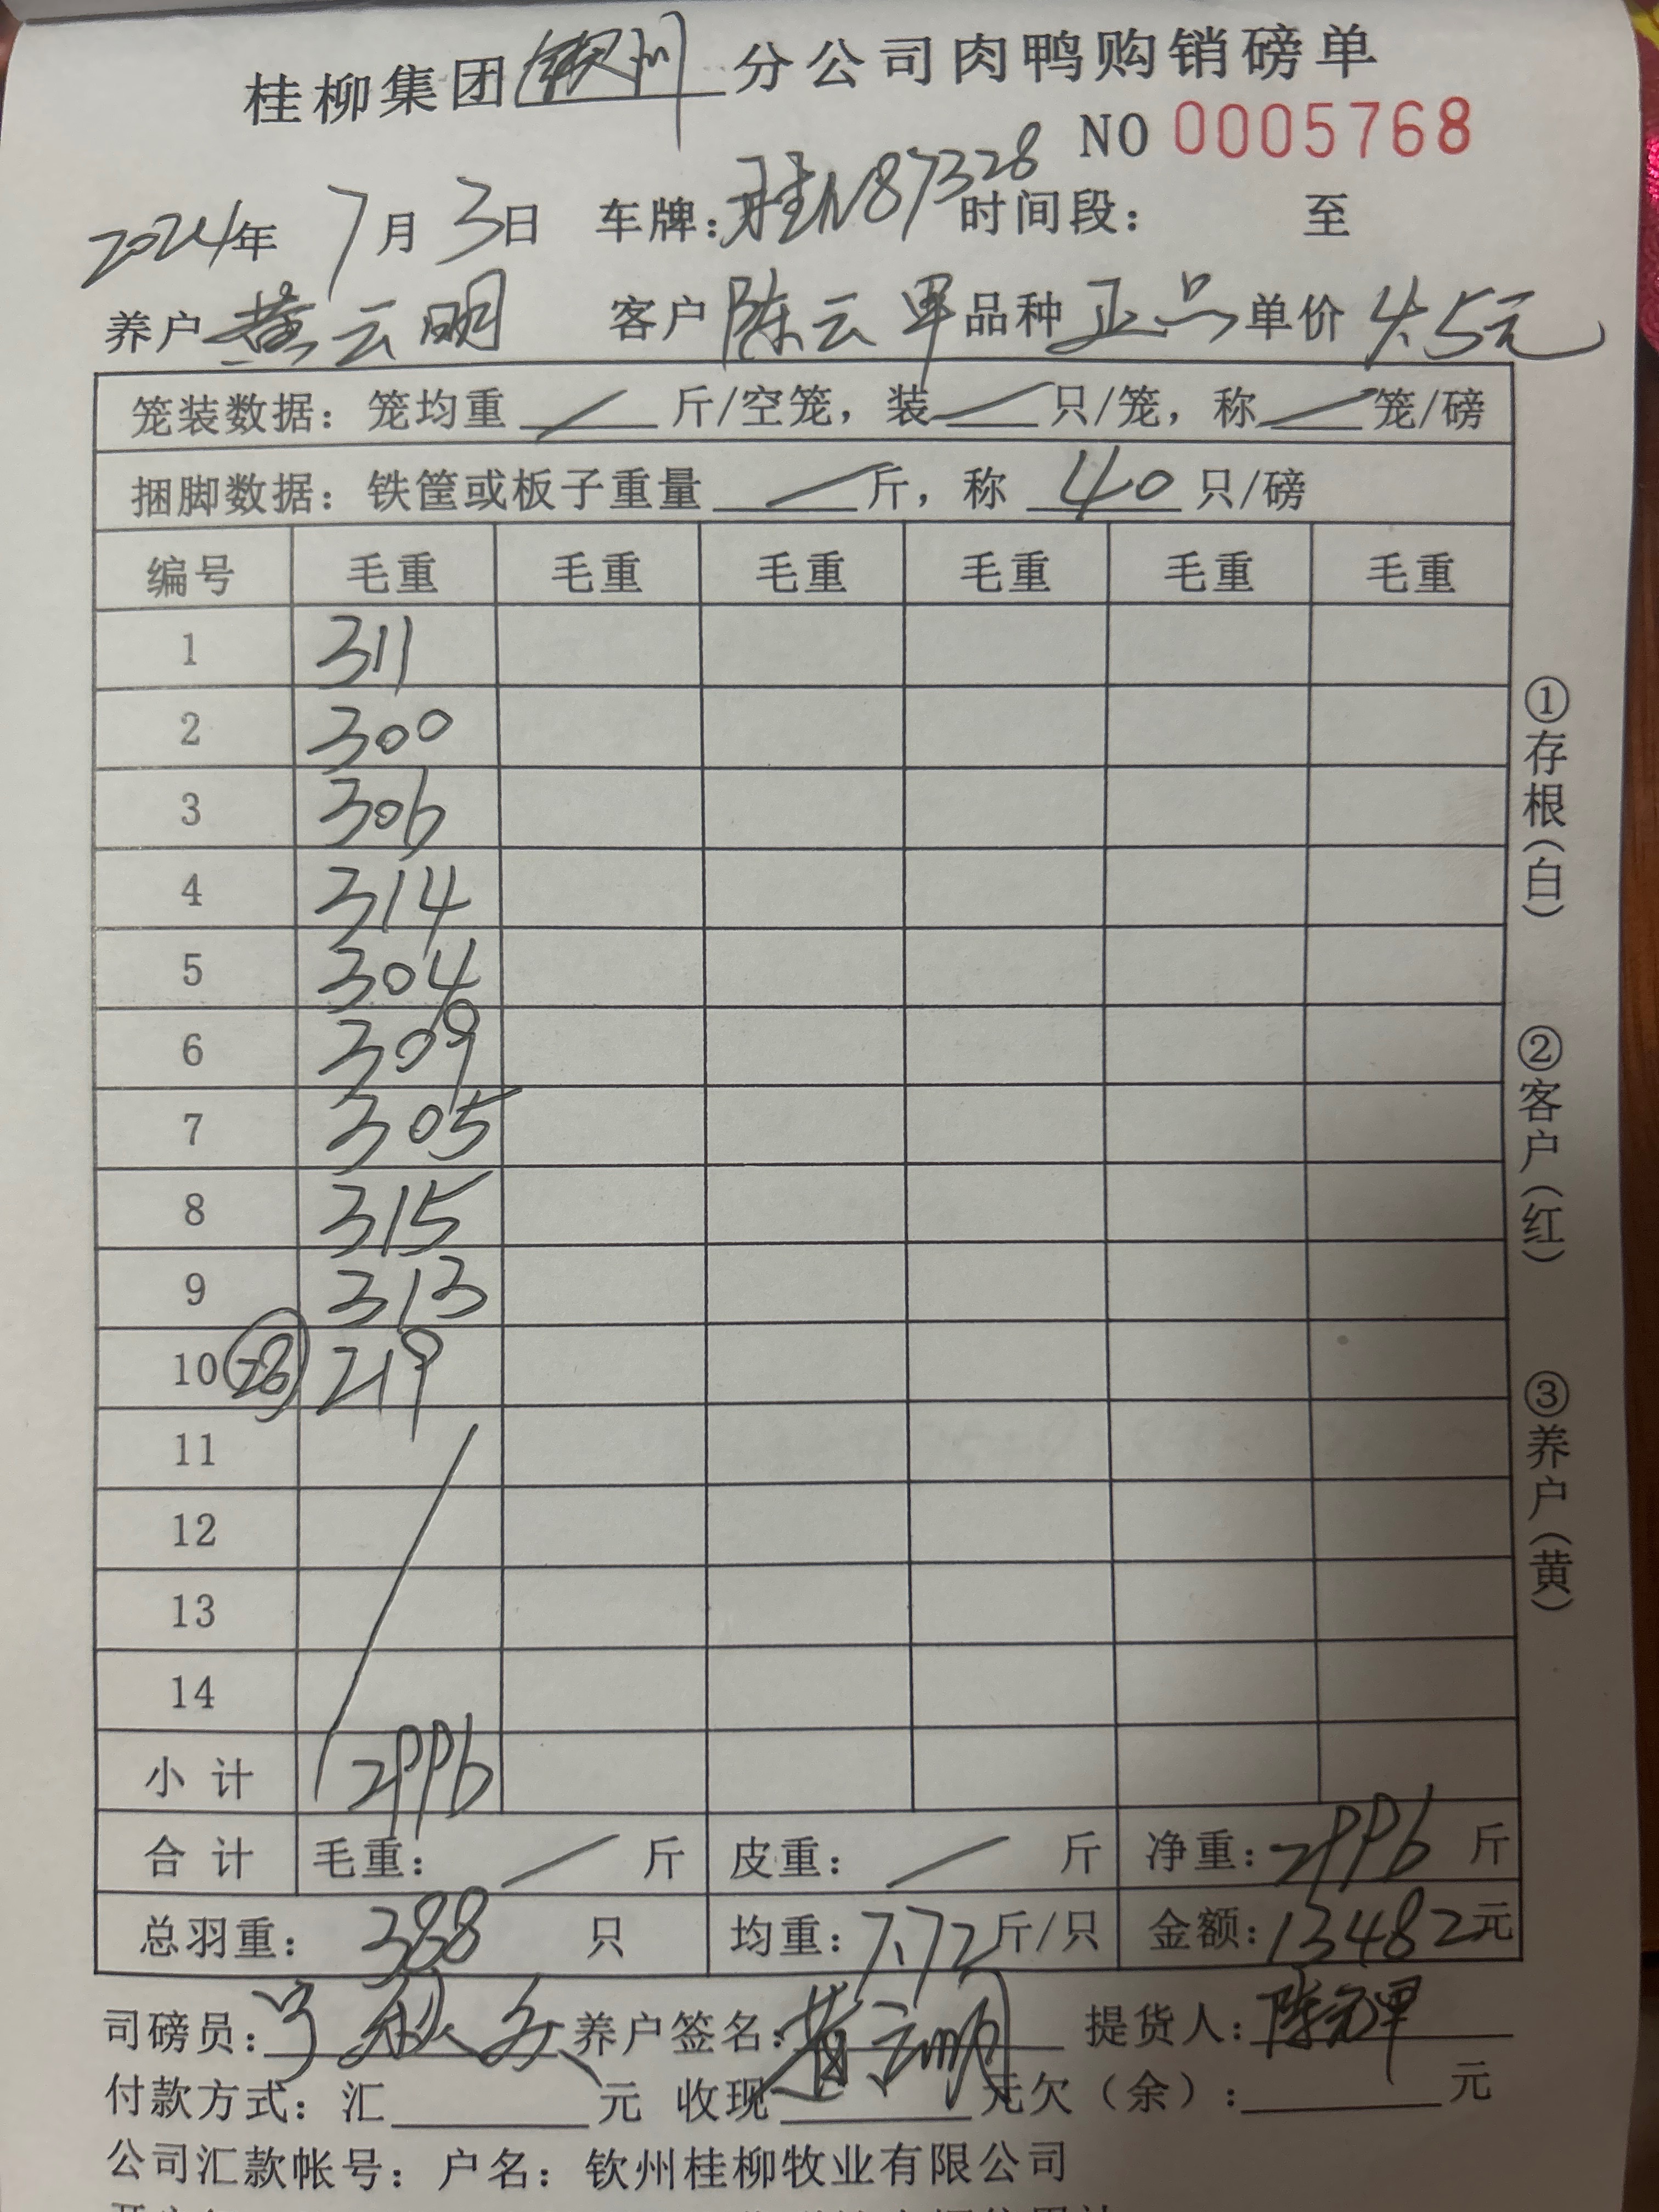 桂柳集团钦州分公司肉鸭购销磅单
NO 0005768
2024年 7月 3日 车牌：桂N87328 时间段： 至
养户 黄云明 客户 陈云甲 品种 正品 单价 4.5元
笼装数据：笼均重 / 斤/空笼，装 / 只/笼，称 / 笼/磅
捆脚数据：铁筐或板子重量 / 斤，称 40 只/磅
编号 毛重 毛重 毛重 毛重 毛重 毛重
1 311
2 300
3 306
4 314
5 304
6 309
7 305
8 315
9 313
10 28 219
11
12
13
14
小计 2996
合计 毛重： / 斤 皮重： / 斤 净重：2996 斤
总羽重： 388 只 均重：7.72斤/只 金额：13482元
司磅员： 养户签名：黄云明 提货人：陈云甲
付款方式：汇 元 收现 元欠（余）： 元
公司汇款帐号：户名：钦州桂柳牧业有限公司
①存根（白）
②客户（红）
③养户（黄）